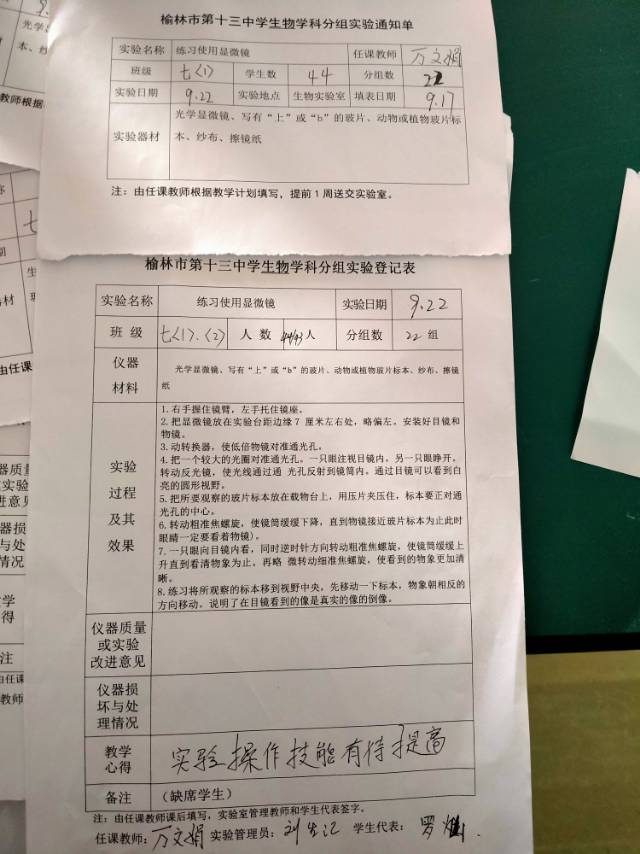 榆林市第十三中学生物学科分组实验通知单
实验名称 练习使用显微镜 任课教师 万文娟
班级 七<1> 学生数 44 分组数 22
实验日期 9.22 实验地点 生物实验室 填表日期 9.17
实验器材 光学显微镜、写有“上”或“b”的玻片、动物或植物玻片标
本、纱布、擦镜纸
注：由任课教师根据教学计划填写，提前1周送交实验室。
榆林市第十三中学生物学科分组实验登记表
实验名称 练习使用显微镜 实验日期 9.22
班 级 七<1>.<2> 人 数 44/43人 分组数 22 组
仪器
材料
光学显微镜、写有“上”或“b”的玻片、动物或植物玻片标本、纱布、擦镜
纸
实验
过程
及其
效果
1.右手握住镜臂，左手托住镜座。
2.把显微镜放在实验台距边缘7 厘米左右处，略偏左，安装好目镜和
物镜。
3.动转换器，使低倍物镜对准通光孔。
4.把一个较大的光圈对准通光孔。一只眼注视目镜内，另一只眼睁开，
转动反光镜，使光线通过通 光孔反射到镜筒内，通过目镜可以看到白
亮的圆形视野。
5.把所要观察的玻片标本放在载物台上，用压片夹压住，标本要正对通
光孔的中心。
6.转动粗准焦螺旋，使镜筒缓缓下降，直到物镜接近玻片标本为止此时
眼睛一定要看着物镜）。
7.一只眼向目镜内看，同时逆时针方向转动粗准焦螺旋，使镜筒缓缓上
升直到看清物象为止，再略 微转动细准焦螺旋，使看到的物象更加清
晰。
8.练习将所观察的标本移到视野中央，先移动一下标本，物象朝相反的
方向移动，说明了在目镜看到的像是真实的像的倒像。
仪器质量
或实验
改进意见
仪器损
坏与处
理情况
教学
心得
实验操作技能有待提高
备注 （缺席学生）
注：由任课教师课后填写，实验室管理教师和学生代表签字。
任课教师：万文娟 实验管理员： 学生代表：